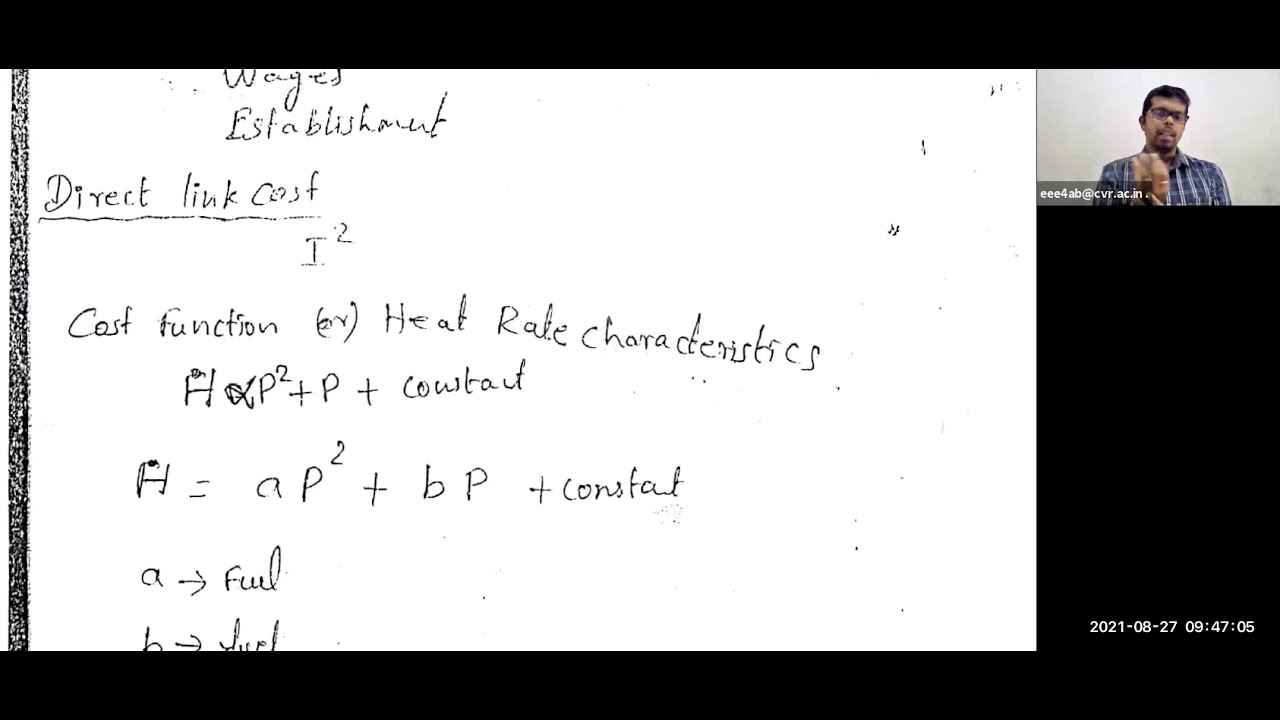 Wages
Establishment
Direct link cost
I²
Cost Function (or) Heat Rate characteristics
H α P² + P + constant
H = a P² + b P + constat
a → Fuel
b → fuel
eee4ab@cvr.ac.in
2021-08-27 09:47:05